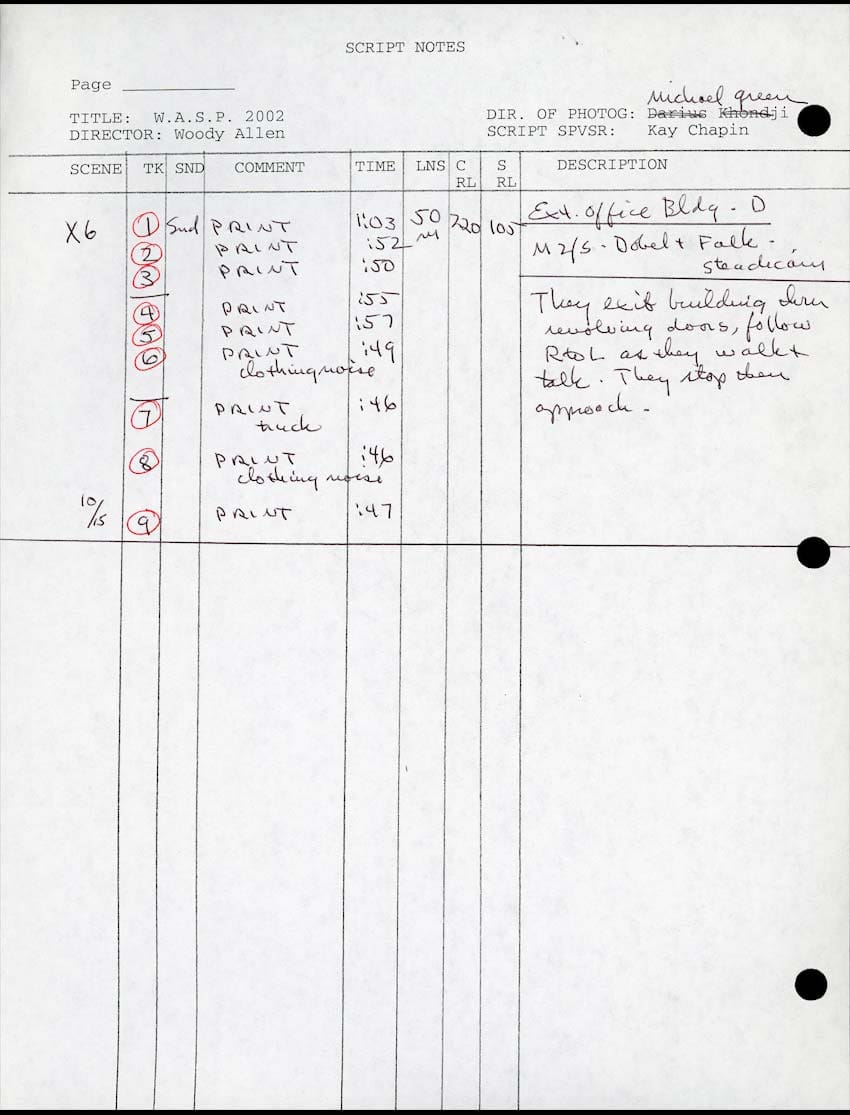 SCRIPT NOTES
Page
Michael green
TITLE: W.A.S.P. 2002 DIR. OF PHOTOG: Darius Khondji
DIRECTOR: Woody Allen SCRIPT SPVSR: Kay Chapin
SCENE TK SND COMMENT TIME LNS C RL S RL DESCRIPTION
Ext. Office Bldg - D
X6 1 Snd PRINT 1:03 50 M 720 105
2 PRINT :52 M 2/S - Dobel + Falk -
3 PRINT :50 steadicam
4 PRINT :55 They exit building thru
5 PRINT :57 revolving doors, follow
6 PRINT :49 R to L as they walk +
clothing noise talk. They stop then
7 PRINT :46 approach -
truck
8 PRINT :46
clothing noise
10/15 9 PRINT :47